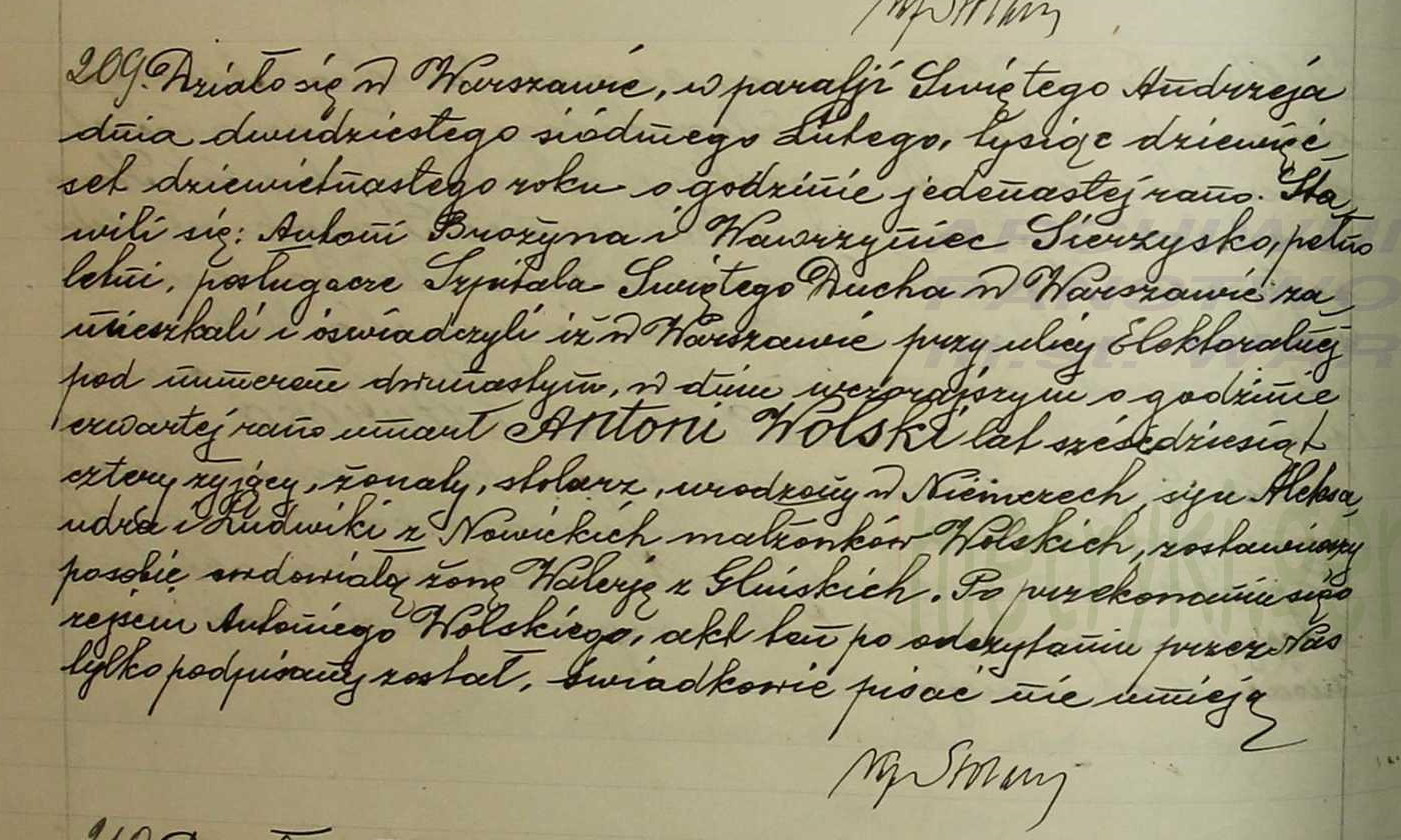 209. Działo się w Warszawie, w parafji Świętego Andrzeja
dnia dwudziestego siódmego Lutego, tysiąc dziewięć
set dziewiętnastego roku o godzinie jedenastej rano. Sta
wili się: Antoni Brożyna i Wawrzyniec Sierzysko, pełno
letni, posługacze Szpitala Świętego Ducha w Warszawie za
mieszkali i oświadczyli iż w Warszawie przy ulicy Elektoralnej
pod numerem dwunastym, w dniu wczorajszym o godzinie
czwartej rano umarł Antoni Wolski lat sześćdziesiąt
cztery żyjący, żonaty, stolarz, urodzony w Niemczech, syn Aleksa
ndra i Ludwiki z Nowickich małżonków Wolskich, zostawiwszy
po sobie owdowiałą żonę Walerję z Glińskich. Po przekonaniu się o
zejściu Antoniego Wolskiego, akt ten po odczytaniu przez Nas
tylko podpisany został, świadkowie pisać nie umieją